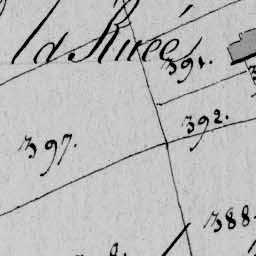 la Ruée
391.
392.
397.
388.